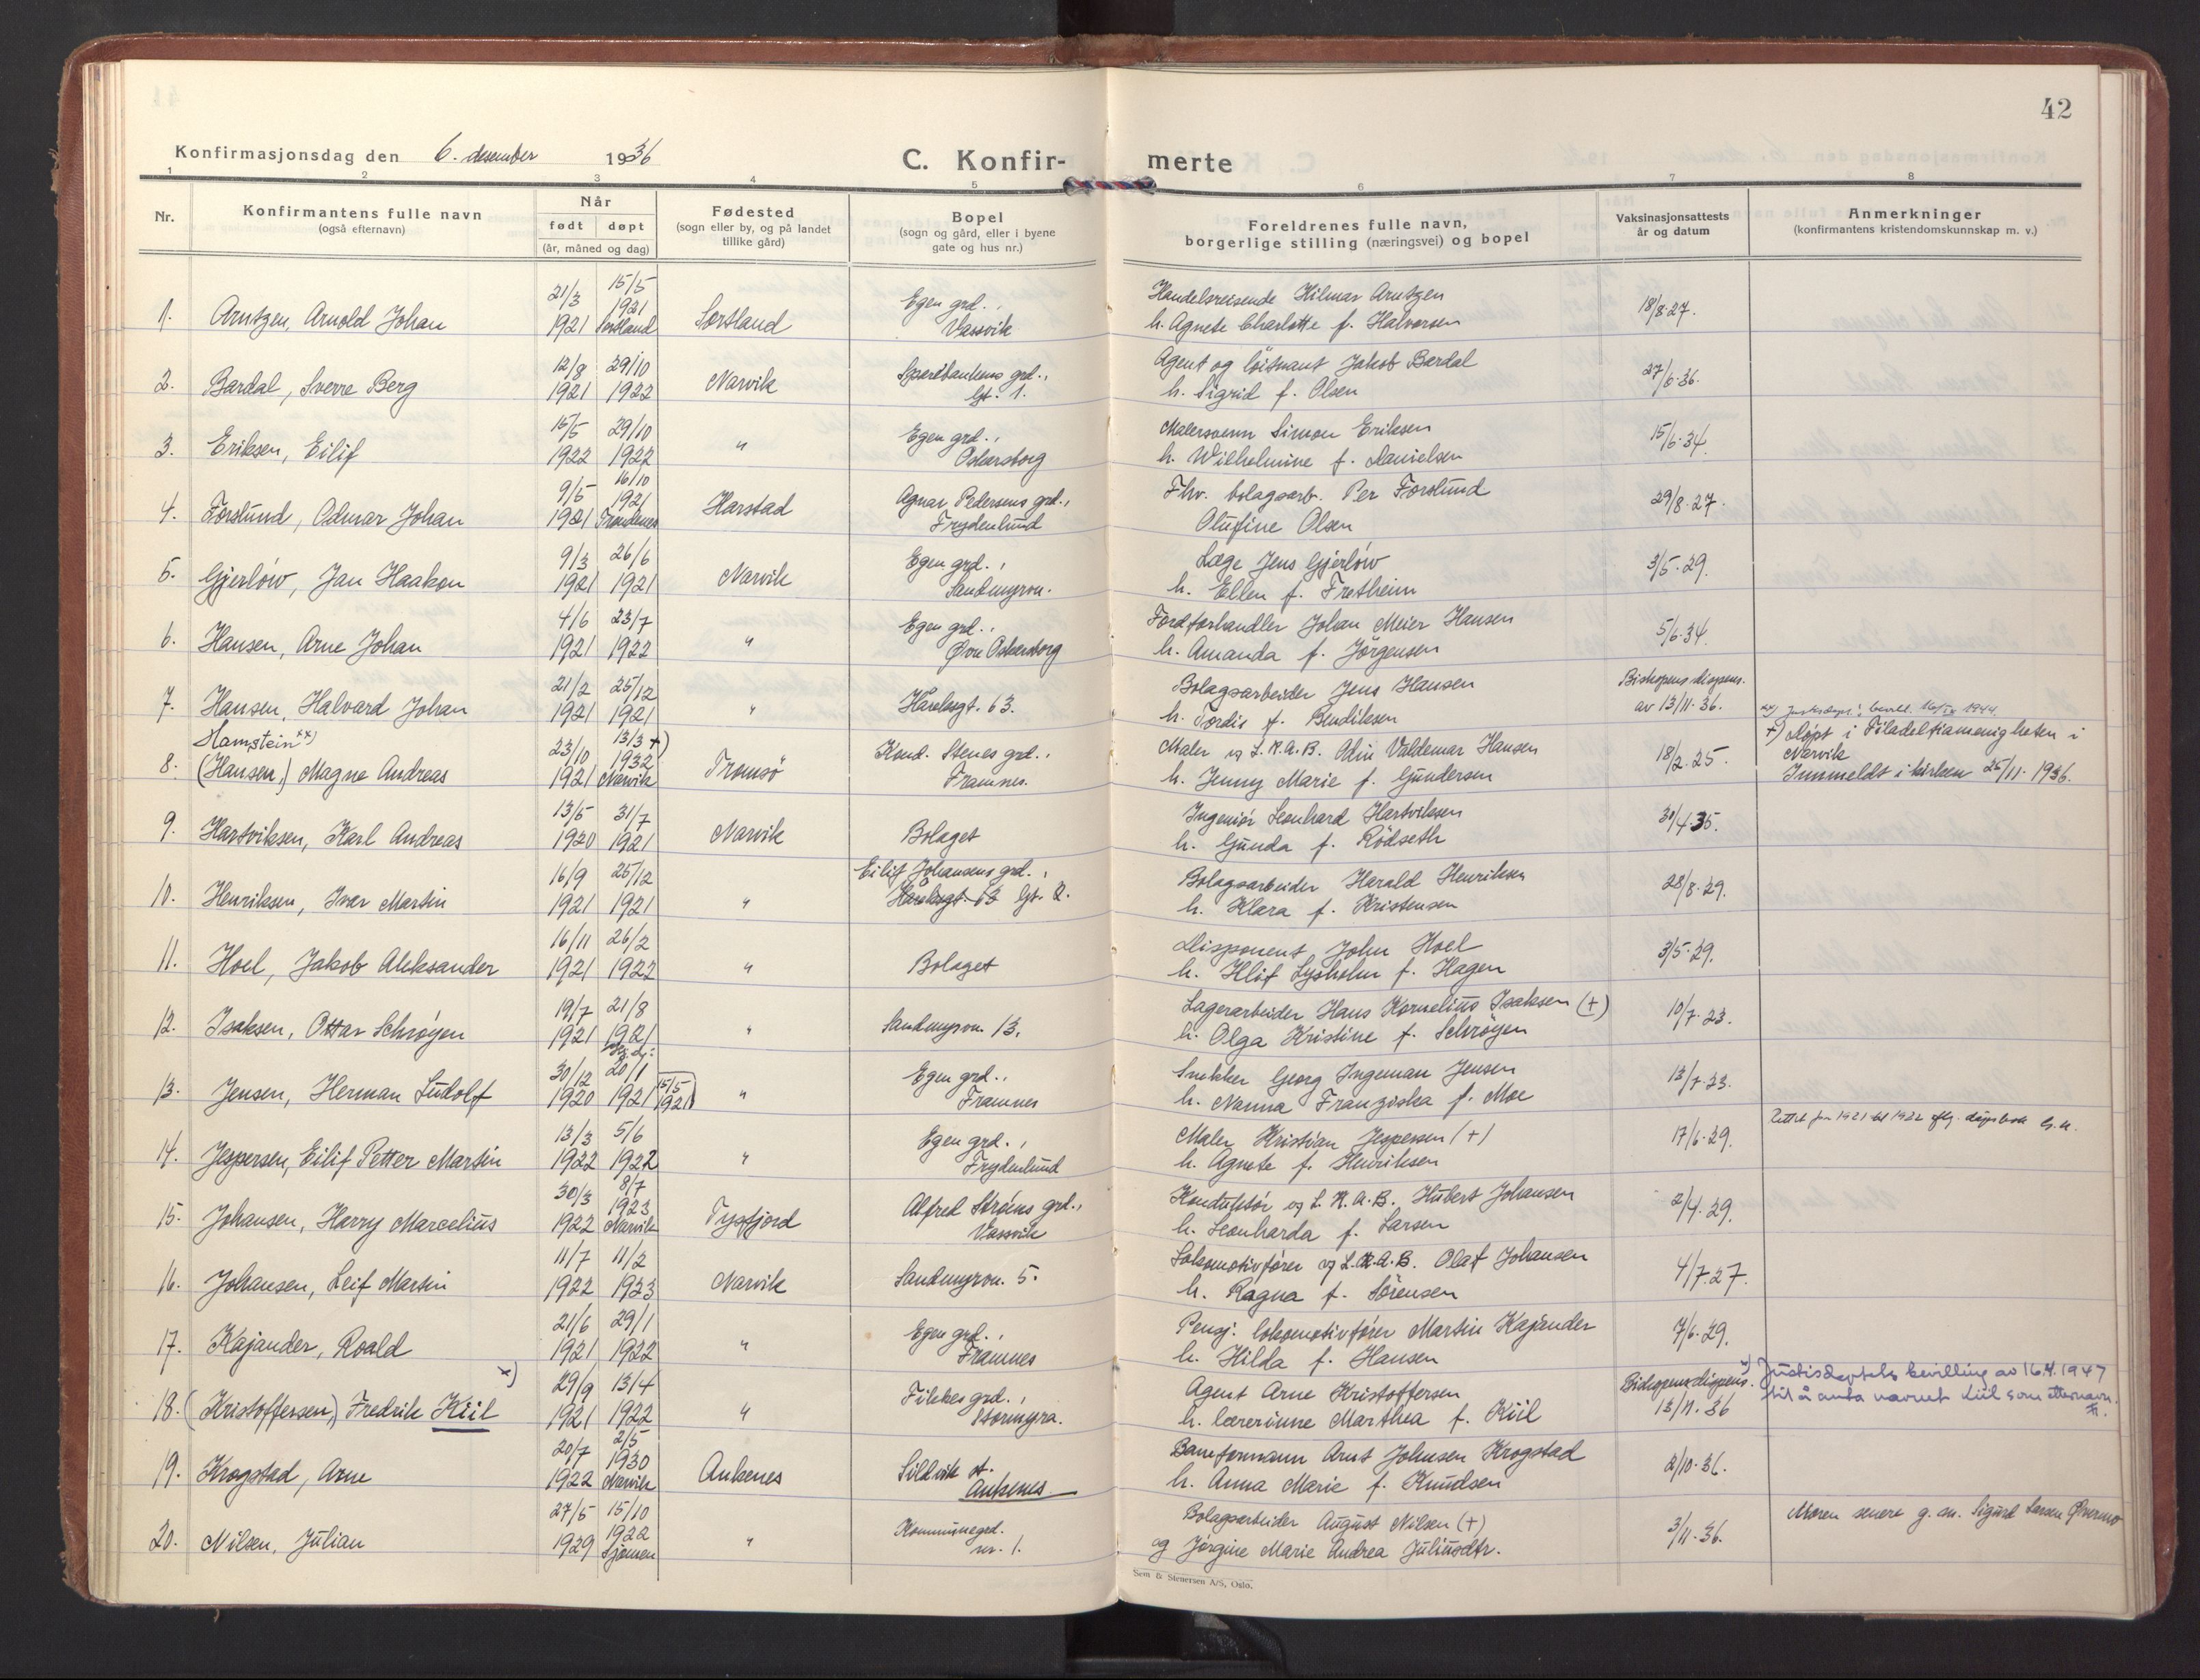 42
Konfirmasjonsdag den 6. desember 1936
C. Konfir- merte
1 2 3 4 5 6 7 8
Nr.
Konfirmantens fulle navn
(også efternavn)
Når
født døpt
(år, måned og dag)
Fødested
(sogn eller by, og på landet
tillike gård)
Bopel
(sogn og gård, eller i byene
gate og hus nr.)
Foreldrenes fulle navn,
borgerlige stilling (næringsvei) og bopel
Vaksinasjonsattests
år og datum
Anmerkninger
(konfirmantens kristendomskunnskap m. v.)
21/3 15/5 Egen grd., Handelsreisende Hilmar Arntzen
1921
1. Arntzen, Arnold Johan 1921 Sortland Sortland Vassvik h. Agnete Charlotte f. Halvorsen 18/8-27.
12/8 29/10 Sparebankens grd., Agent og løitnant Jakob Bardal
2. Bardal, Sverre Berg 1921 1922 Narvik Gt. 1. h. Sigrid f. Olsen 27/6-36.
15/5 29/10 Egen grd., Malersvenn Simon Eriksen
3. Eriksen, Eilif 1922 1922 " Oskarsborg h. Wilhelmine f. Danielsen 15/6-34.
9/5 16/10 Agnar Pedersens grd., Fhv. bolagsarb. Per Forslund
1921
4. Forslund, Odmar Johan 1921 Trondenes Harstad Frydenlund Olufine Olsen 29/8-27.
9/3 26/6 Egen grd., Læge Jens Gjerløw
5. Gjerløw, Jan Haakon 1921 1921 Narvik Sandmyrvn. h. Ellen f. Fretheim 3/5-29.
4/6 23/7 Egen grd., Fordforhandler Johan Meier Hansen
6. Hansen, Arne Johan 1921 1922 " Øvre Oskarsborg h. Amanda f. Jörgensen 5/6-34.
21/2 25/12 Bolagsarbeider Jens Hansen Bishopens dispens.
7. Hansen, Halvard Johan 1921 1921 " Håreksgt. 63. h. Tordis f. Bendiksen av 13/11-36.
xx) Justisdept.'s bevill. 1944.
Hamstein xx) 23/10 13/3 +) Knud. Stenes grd., Maler v L.K.A.B. Odin Valdemar Hansen +) Døpt i Filadelfiamenigheten i
1932 Narvik
8. (Hansen,) Magne Andreas 1921 Narvik Tromsö Framnes. h. Jenny Marie f. Gundersen 18/2-25. Innmeldt i kirken 25/11-1936.
13/5 31/7 Ingeniør Leonhard Hartviksen
9. Hartviksen, Karl Andreas 1920 1921 Narvik Bolaget h. Gunda f. Rödseth 30/4-35.
16/9 25/12 Eilif Johansens grd., Bolagsarbeider Harald Henriksen
10. Henriksen, Ivar Martin 1921 1921 " Håreksgt. 63 Gt. 2. h. Klara f. Kristensen 28/8-29.
16/11 26/2 Disponent John Hoel
11. Hoel, Jakob Aleksander 1921 1922 " Bolaget h. Hlif Lysholm f. Hagen 3/5-29.
19/7 21/8 Lagerarbeider Hans Kornelius Isaksen (+)
12. Isaksen, Ottar Schrøyen 1921 1921 " Sandmyrvn. 13. h. Olga Kristine f. Schrøyen 10/7-23.
30/12 20/1 Egen grd., Snekker Georg Ingeman Jensen
13. Jensen, Herman Ludolf 1920 1921 15/5 1921 " Framnes h. Nanna Franziska f. Moe 13/7-23.
13/3 5/6 Egen grd., Maler Kristian Jespersen (+) Rettet fra 1921 til 1922 iflg. dåpsbok
14. Jespersen, Eilif Petter Martin 1922 1922 " Frydenlund h. Agnete f. Henriksen 17/6-29.
30/3 8/7 Alfred Ströms grd., Konduktör v L.K.A.B. Hubert Johansen
1923
15. Johansen, Harry Marcelius 1922 Narvik Tysfjord Vassvik h. Leonharda f. Larsen 2/4-29.
11/7 11/2 Lokomotivfører v L.K.A.B. Olaf Johansen
16. Johansen, Leif Martin 1922 1923 Narvik Sandmyrvn. 5. h. Ragna f. Sörensen 4/7-27.
21/6 29/1 Egen grd., Pensj. lokomotivfører Martin Kajander
17. Kajander, Roald 1921 1922 " Framnes h. Hilda f. Hansen 7/6-29.
x) 29/9 13/4 Filekes grd., Agent Arne Kristoffersen Bishopens dispens. x) Justisdeptets bevilling av 16.4.1947
18. (Kristoffersen,) Fredrik Kiil 1921 1922 " Stormyra. h. lærerinne Marthea f. Kiil 13/11-36 til å anta navnet Kiil som etternavn.
20/7 2/5 Baneformann Arnt Johnsen Krogstad
1930
19. Krogstad, Arne 1922 Narvik Ankenes Sildvik st. Ankenes. h. Anna Marie f. Knudsen 2/10-36.
27/5 15/10 Kommunegrd. Bolagsarbeider August Nilsen (+) Moren senere g. m. Sigurd Larsen Øvermo
1922
20. Nilsen, Julian 1929 Sjømen " nr. 1. og Jørgine Marie Andrea Juliusdtr. 3/11-36.
Sem & Stenersen A/S, Oslo.